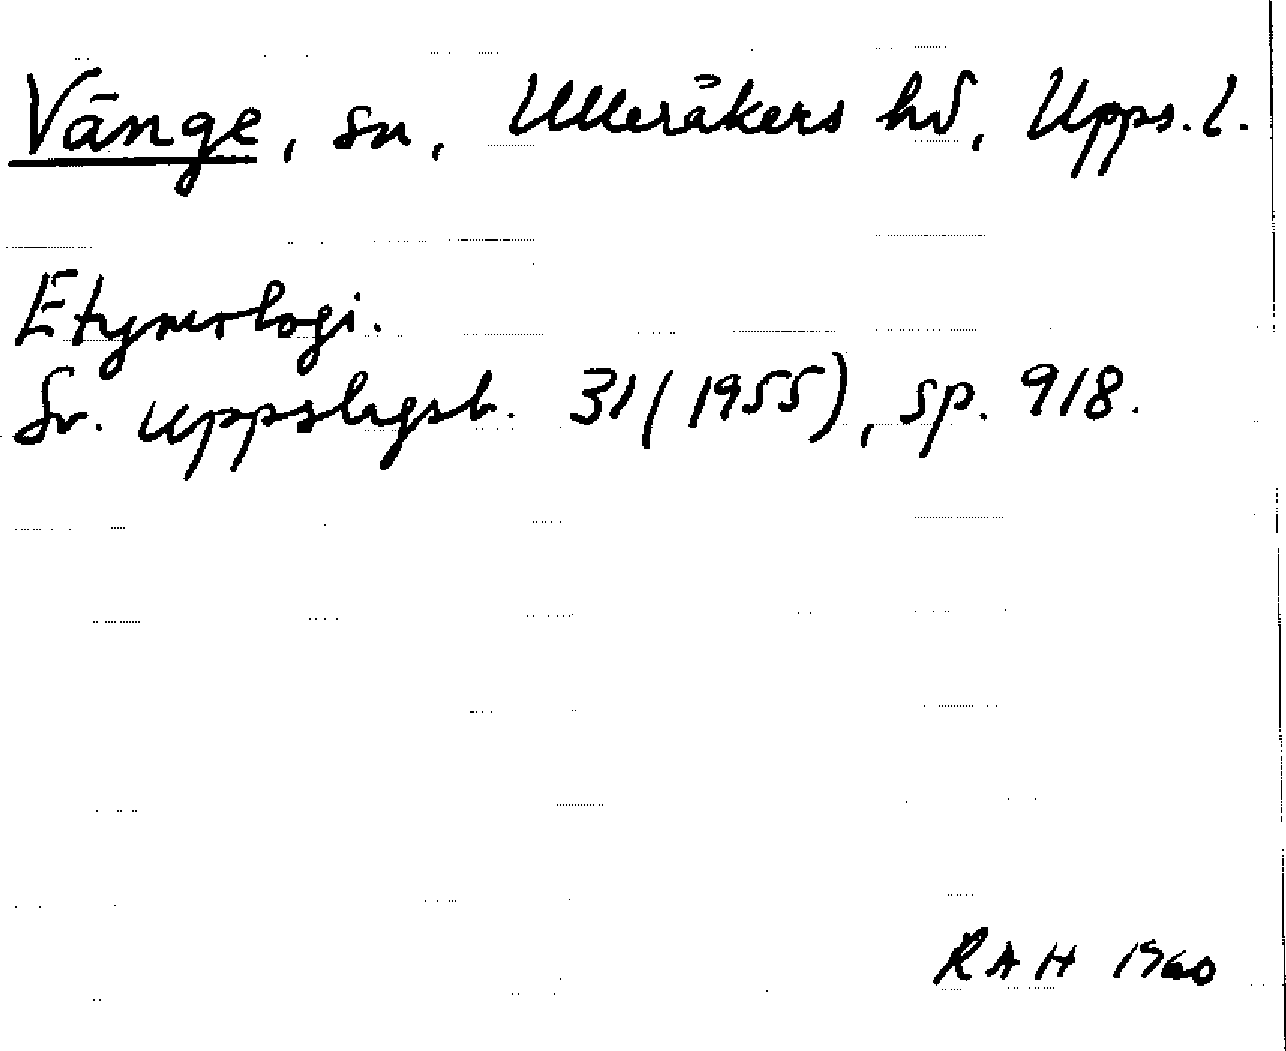 Vänge, sn, Ulleråkers hd, Upps. l.
Etymologi.
Sv. uppslagsb. 31 (1955), sp. 918.
RAH 1960